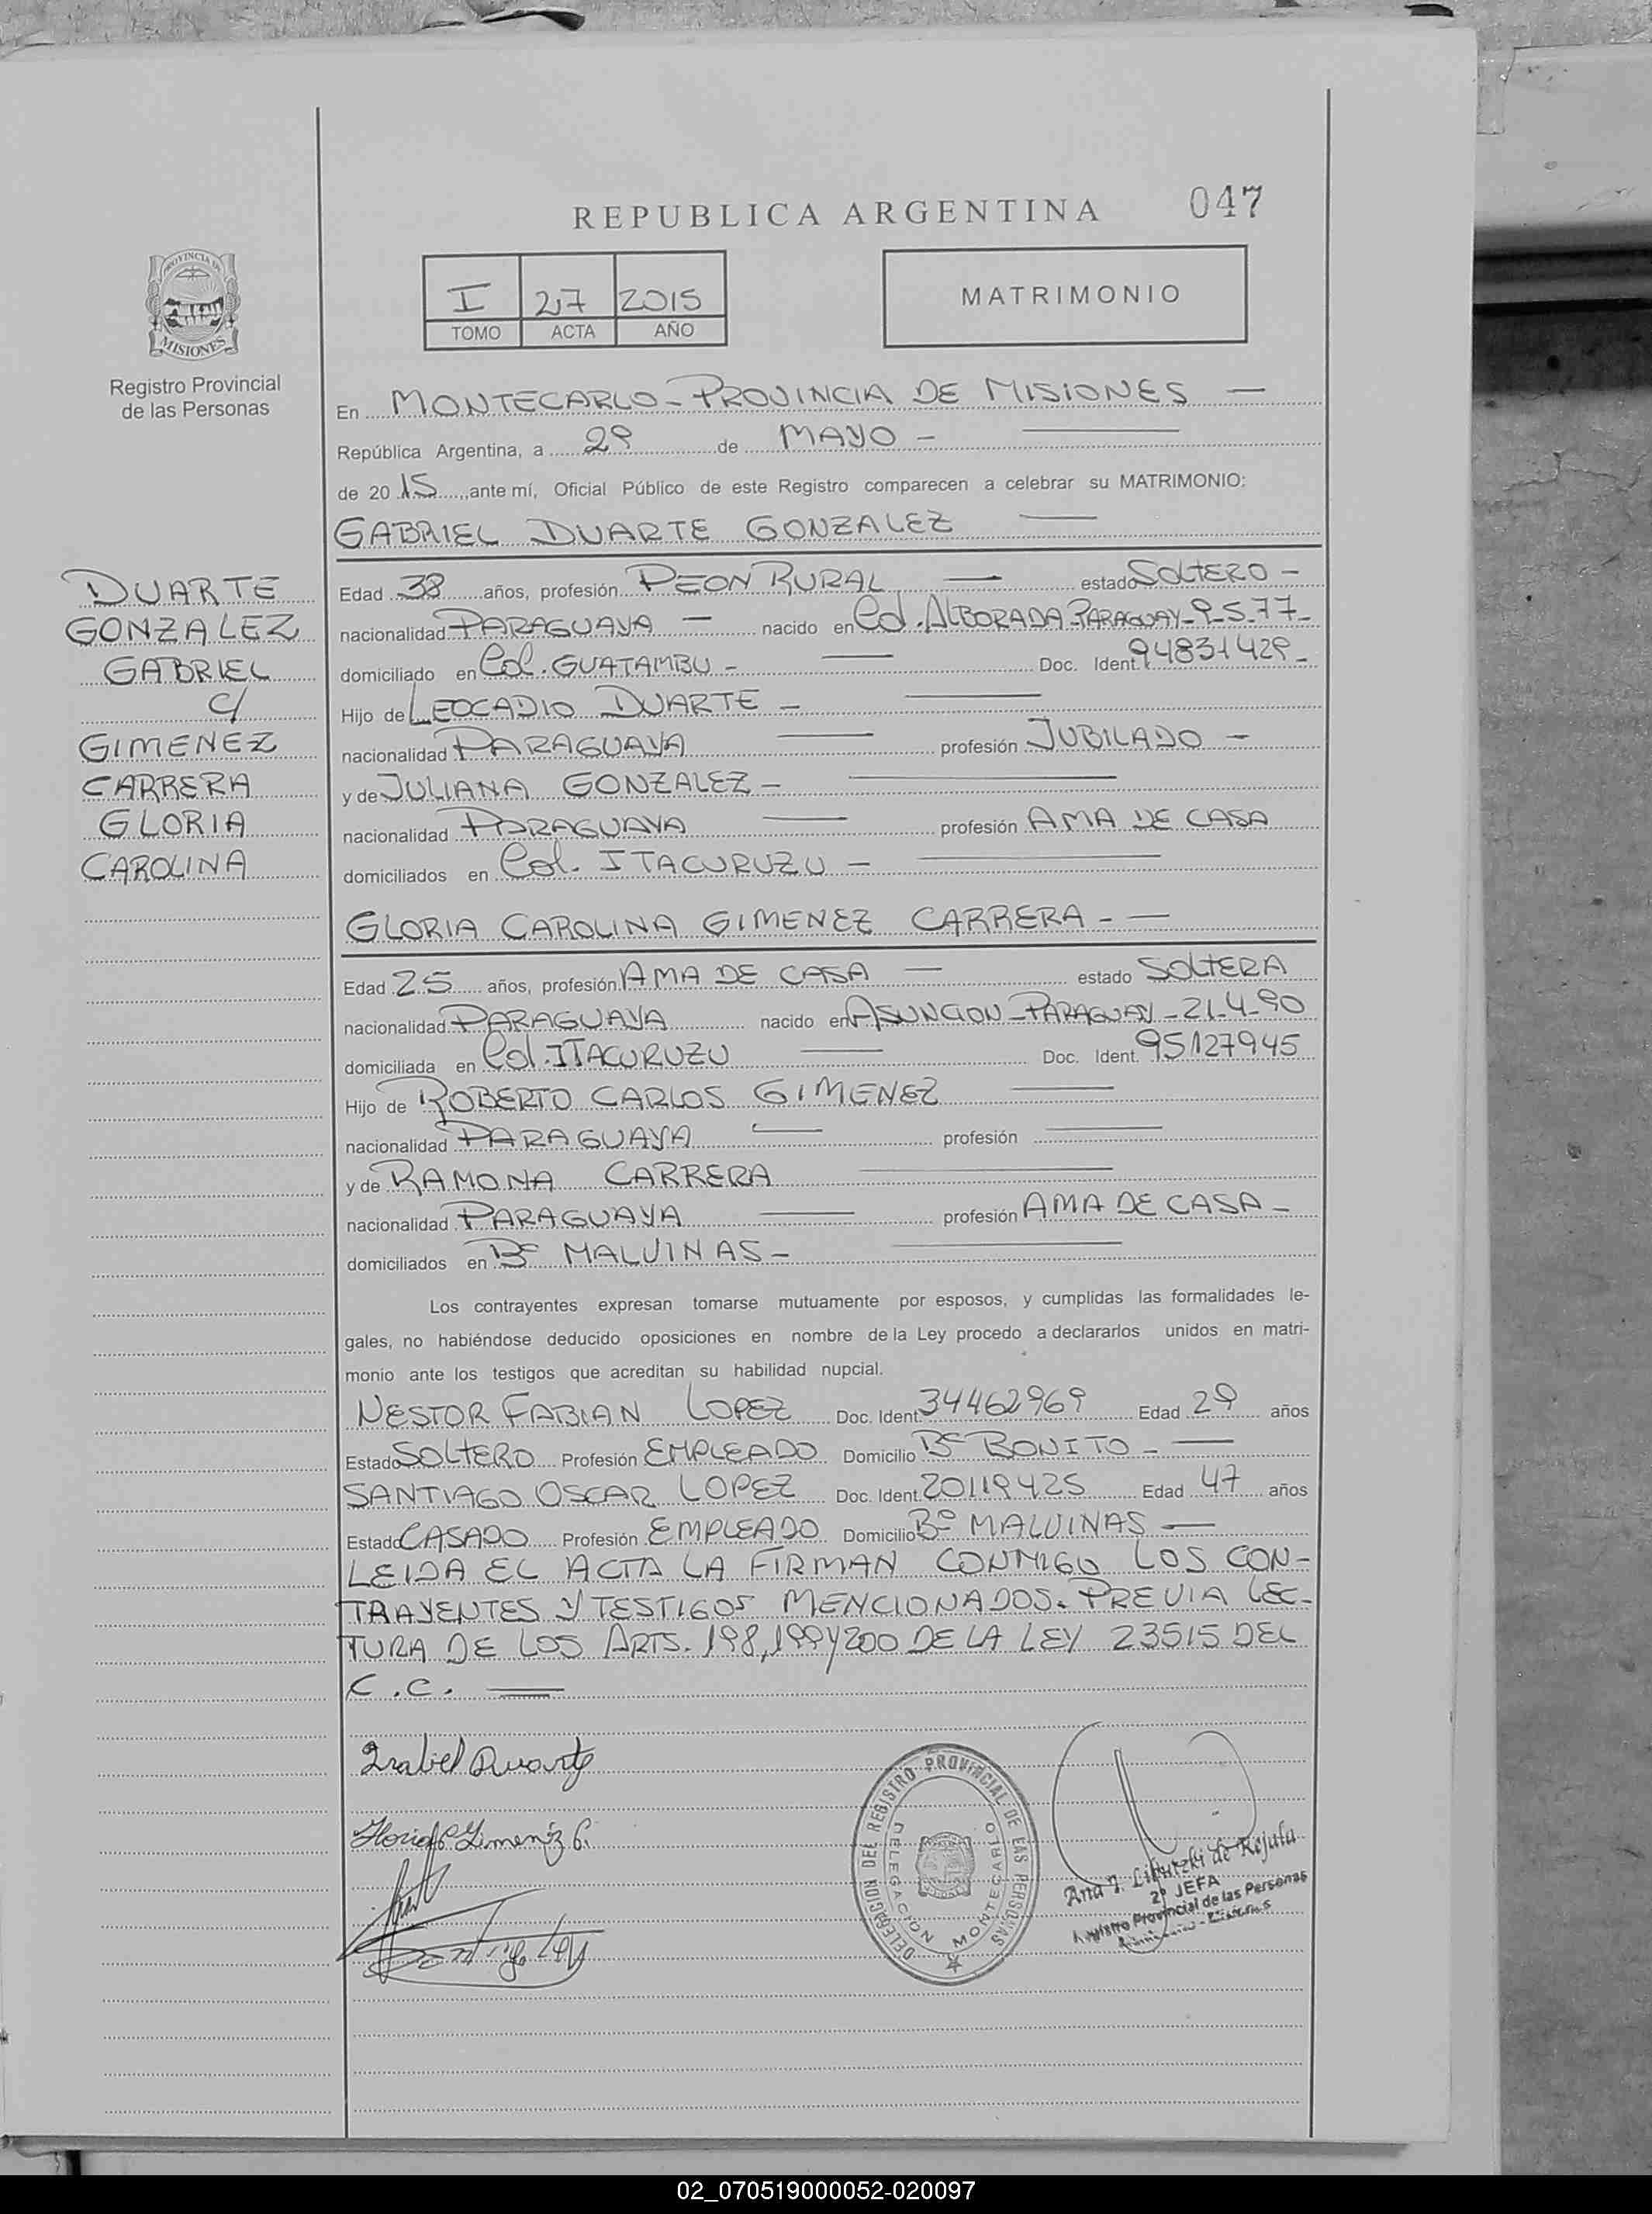 REPUBLICA ARGENTINA
047
PROVINCIA DE
MISIONES
Registro Provincial
de las Personas
I 27 2015
TOMO ACTA AÑO
MATRIMONIO
En MONTECARLO - PROVINCIA DE MISIONES —
República Argentina, a 29 de MAYO -
de 20 15, ante mí, Oficial Público de este Registro comparecen a celebrar su MATRIMONIO:
GABRIEL DUARTE GONZALEZ
DUARTE
GONZALEZ
GABRIEL
C/
GIMENEZ
CARRERA
GLORIA
CAROLINA
Edad 38 años, profesión PEON RURAL — estado SOLTERO -
nacionalidad PARAGUAYA — nacido en Cd. ALBORADA PARAGUAY - 9-5-77-
domiciliado en Col. GUATAMBU - Doc. Ident. 94831429-
Hijo de LEOCADIO DUARTE -
nacionalidad PARAGUAYA profesión JUBILADO -
y de JULIANA GONZALEZ -
nacionalidad PARAGUAYA profesión AMA DE CASA
domiciliados en Col. ITACURUZU -
GLORIA CAROLINA GIMENEZ CARRERA - —
Edad 25 años, profesión AMA DE CASA — estado SOLTERA
nacionalidad PARAGUAYA nacido en ASUNCION - PARAGUAY - 21-4-90
domiciliada en Col. ITACURUZU Doc. Ident. 95127945
Hijo de ROBERTO CARLOS GIMENEZ
nacionalidad PARAGUAYA profesión
y de RAMONA CARRERA
nacionalidad PARAGUAYA profesión AMA DE CASA -
domiciliados en Bº MALVINAS -
Los contrayentes expresan tomarse mutuamente por esposos, y cumplidas las formalidades le-
gales, no habiéndose deducido oposiciones en nombre de la Ley procedo a declararlos unidos en matri-
monio ante los testigos que acreditan su habilidad nupcial.
NESTOR FABIAN LOPEZ Doc. Ident. 34462969 Edad 29 años
Estado SOLTERO Profesión EMPLEADO Domicilio Bº BONITO -
SANTIAGO OSCAR LOPEZ Doc. Ident. 20119425 Edad 47 años
Estado CASADO Profesión EMPLEADO Domicilio Bº MALVINAS —
LEIDA EL ACTA LA FIRMAN CONMIGO LOS CON-
TRAYENTES Y TESTIGOS MENCIONADOS. PREVIA LEC-
TURA DE LOS ARTS. 198, 199 Y 200 DE LA LEY 23515 DEL
C.C.
Grabiel Duarte
Gloria C Gimenez C.
DELEGACION DEL REGISTRO PROVINCIAL DE LAS PERSONAS
DELEGACION MONTECARLO
de Rejala
2º JEFA
Registro Provincial de las Personas
02_070519000052-020097